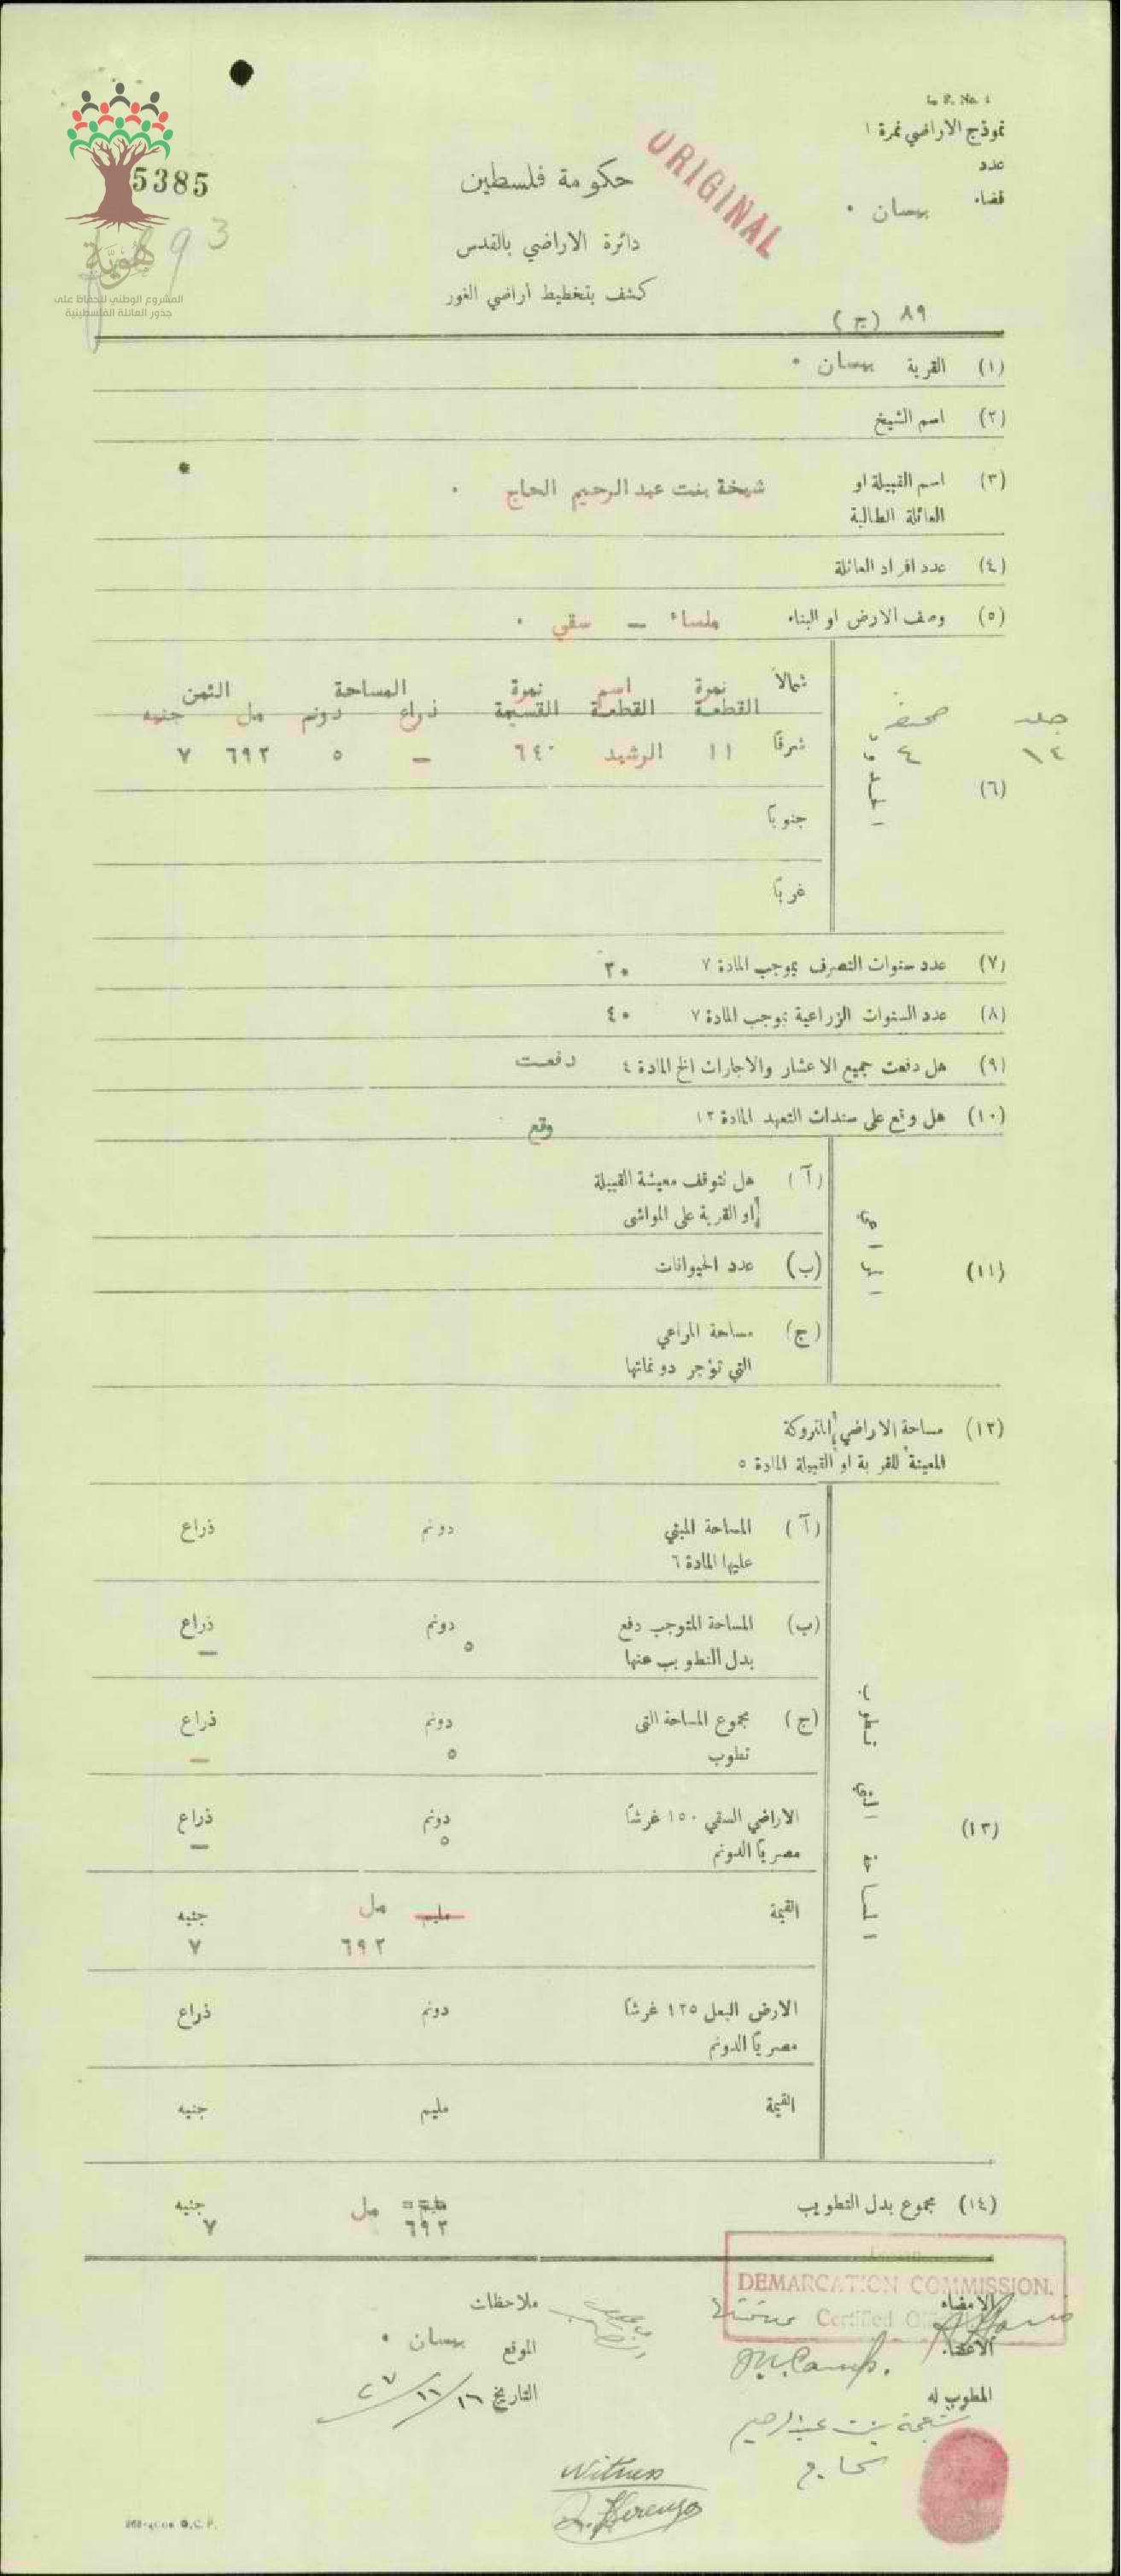 L. P. No. 1
نموذج الاراضي نمرة ١
عدد
قضاء بيسان •
ORIGINAL
5385
93
هُوِيَّة
المشروع الوطني للحفاظ على
جذور العائلة الفلسطينية
حكومة فلسطين
دائرة الاراضي بالقدس
كشف بتخطيط أراضي الغور
٨٩ (ج)
(١) القرية بيسان •
(٢) اسم الشيخ
(٣) اسم القبيلة او شيخة بنت عبد الرحيم الحاج •
العائلة الطالبة
(٤) عدد افراد العائلة
(٥) وصف الارض او البناء ملساء — سقي •
شمالاً نمرة اسم نمرة المساحة الثمن
القطعة القطعة القسيمة ذراع دونم مل جنيه
جلد صحيفة
١٤ ٤
(٦) الحدود
شرقاً ١١ الرشيد ٦٤٠ — ٥ ٦٩٢ ٧
جنوباً
غرباً
(٧) عدد سنوات التصرف بموجب المادة ٧ ٣٠
(٨) عدد السنوات الزراعية بموجب المادة ٧ ٤٠
(٩) هل دفعت جميع الاعشار والاجارات الخ المادة ٤ دفعت
(١٠) هل وقع على سندات التعهد المادة ١٢ وقع
(١١) المراعي
(آ) هل تتوقف معيشة القبيلة
او القرية على المواشى
(ب) عدد الحيوانات
(ج) مساحة المراعي
التي تؤجر دونماتها
(١٢) مساحة الاراضي المتروكة
المعينة للقرية او القبيلة المادة ٥
(١٣) المساحة التي تطوب
(آ) المساحة المبني دونم ذراع
عليها المادة ٦
(ب) المساحة المتوجب دفع دونم ذراع
بدل التطويب عنها ٥ —
(ج) مجموع المساحة التى دونم ذراع
تطوب ٥ —
الاراضي السقي ١٥٠ غرشاً دونم ذراع
مصرياً الدونم ٥ —
القيمة مليم مل جنيه
٦٩٢ ٧
الارض البعل ١٢٥ غرشاً دونم ذراع
مصرياً الدونم
القيمة مليم جنيه
(١٤) مجموع بدل التطويب مليم مل جنيه
٦٩٢ ٧
DEMARCATION COMMISSION.
Certified
الامضاء
الاعضاء
J. M. Camp.
المطوب له
شيخة بنت عبد الرحيم
الحاج
ملاحظات
الموقع بيسان •
التاريخ ١٦/١١/٢٧
Witness